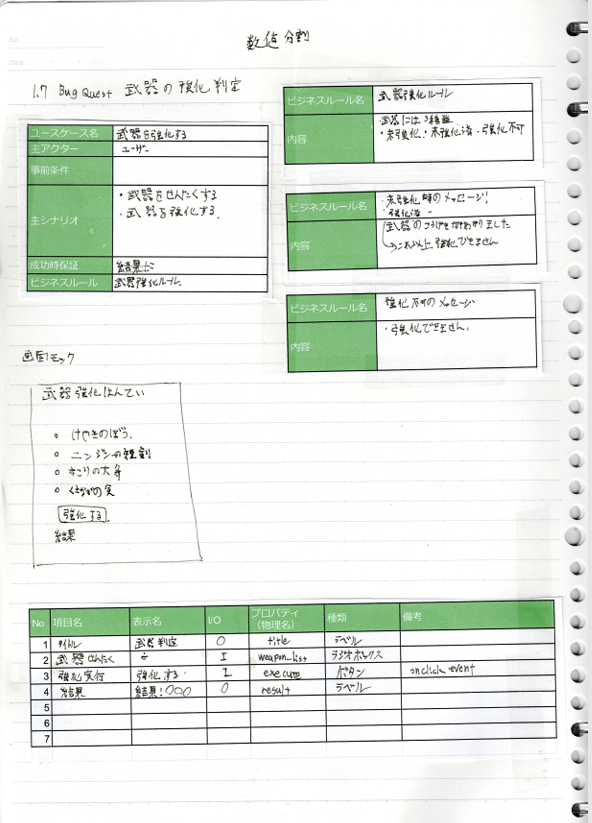 No.
Date
数値分割
1.7 Bug Quest 武器の強化判定
ユースケース名 武器を強化する
主アクター ユーザー
事前条件
主シナリオ ・武器をせんたくする
・武器を強化する
成功時保証 結果が
ビジネスルール 武器強化ルール
ビジネスルール名 武器強化ルール
内容 武器には3種類
・未強化・未強化済・強化不可
ビジネスルール名 ・未強化時のメッセージ!
・強化済〃
内容 武器のこうげき力があがりました
→これ以上強化できません
ビジネスルール名 強化不可のメッセージ
内容 ・強化できません。
画面モック
武器強化はんてい
○ けやきのぼう
○ ニンジンの短剣
○ きこりの大斧
○ くさなぎの
強化する
結果
No 項目名 表示名 I/O プロパティ(物理名) 種類 備考
1 タイトル 武器判定 O title ラベル
2 武器せんたく 〃 I weapon_list ラジオボックス
3 強化実行 強化する I execute ボタン onclick event
4 結果 結果:○○○ O result ラベル
5
6
7